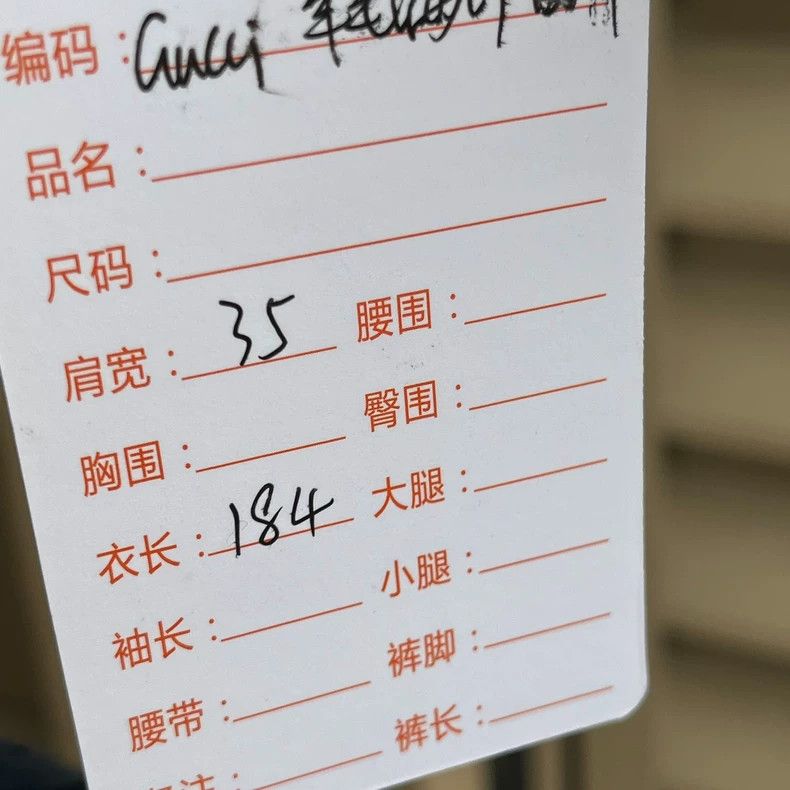 编码：Gucci
品名：
尺码：
肩宽：35 腰围：
胸围： 臀围：
衣长：184 大腿：
袖长： 小腿：
腰带： 裤脚：
裤长：